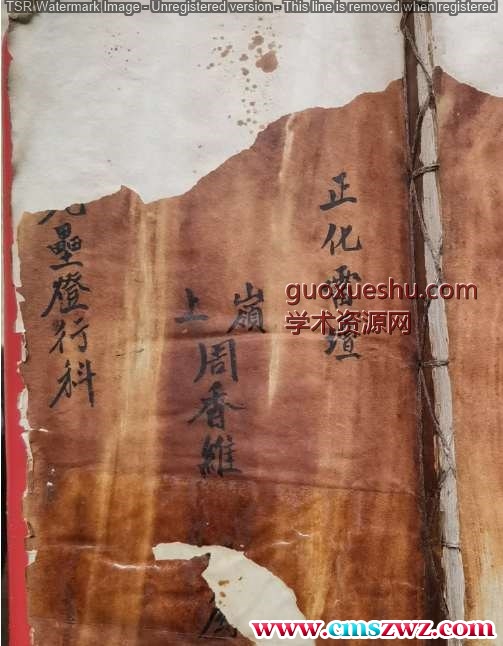 TSR Watermark Image - Unregistered version - This line is removed when registered
正化雷壇
嶺上
周香維
壘燈行科
guoxueshu.com
学术资源网
www.cmszwz.com